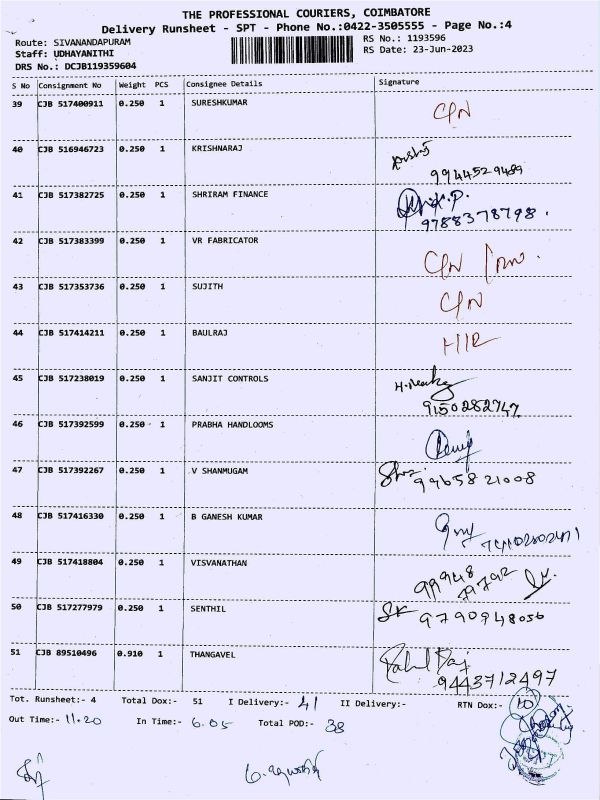 THE PROFESSIONAL COURIERS, COIMBATORE
Delivery Runsheet - SPT - Phone No.:0422-3505555 - Page No.:4
Route: SIVANANDAPURAM RS No.: 1193596
Staff: UDHAYANITHI RS Date: 23-Jun-2023
DRS No.: DCJB119359604
S No Consignment No Weight PCS Consignee Details Signature
39 CJB 517400911 0.250 1 SURESHKUMAR C/N
40 CJB 516946723 0.250 1 KRISHNARAJ
9944529489
41 CJB 517382725 0.250 1 SHRIRAM FINANCE
9788378798.
42 CJB 517383399 0.250 1 VR FABRICATOR C/N
43 CJB 517353736 0.250 1 SUJITH C/N
44 CJB 517414211 0.250 1 BAULRAJ
45 CJB 517238019 0.250 1 SANJIT CONTROLS
9150282747
46 CJB 517392599 0.250 1 PRABHA HANDLOOMS
47 CJB 517392267 0.250 1 V SHANMUGAM
9965821008
48 CJB 517416330 0.250 1 B GANESH KUMAR
49 CJB 517418804 0.250 1 VISVANATHAN
99948
79792
50 CJB 517277979 0.250 1 SENTHIL
9790948056
51 CJB 89510496 0.910 1 THANGAVEL
9443712497
Tot. Runsheet:- 4 Total Dox:- 51 I Delivery:- 41 II Delivery:- RTN Dox:- 10
Out Time:- 11.20 In Time:- 6.05 Total POD:- 38